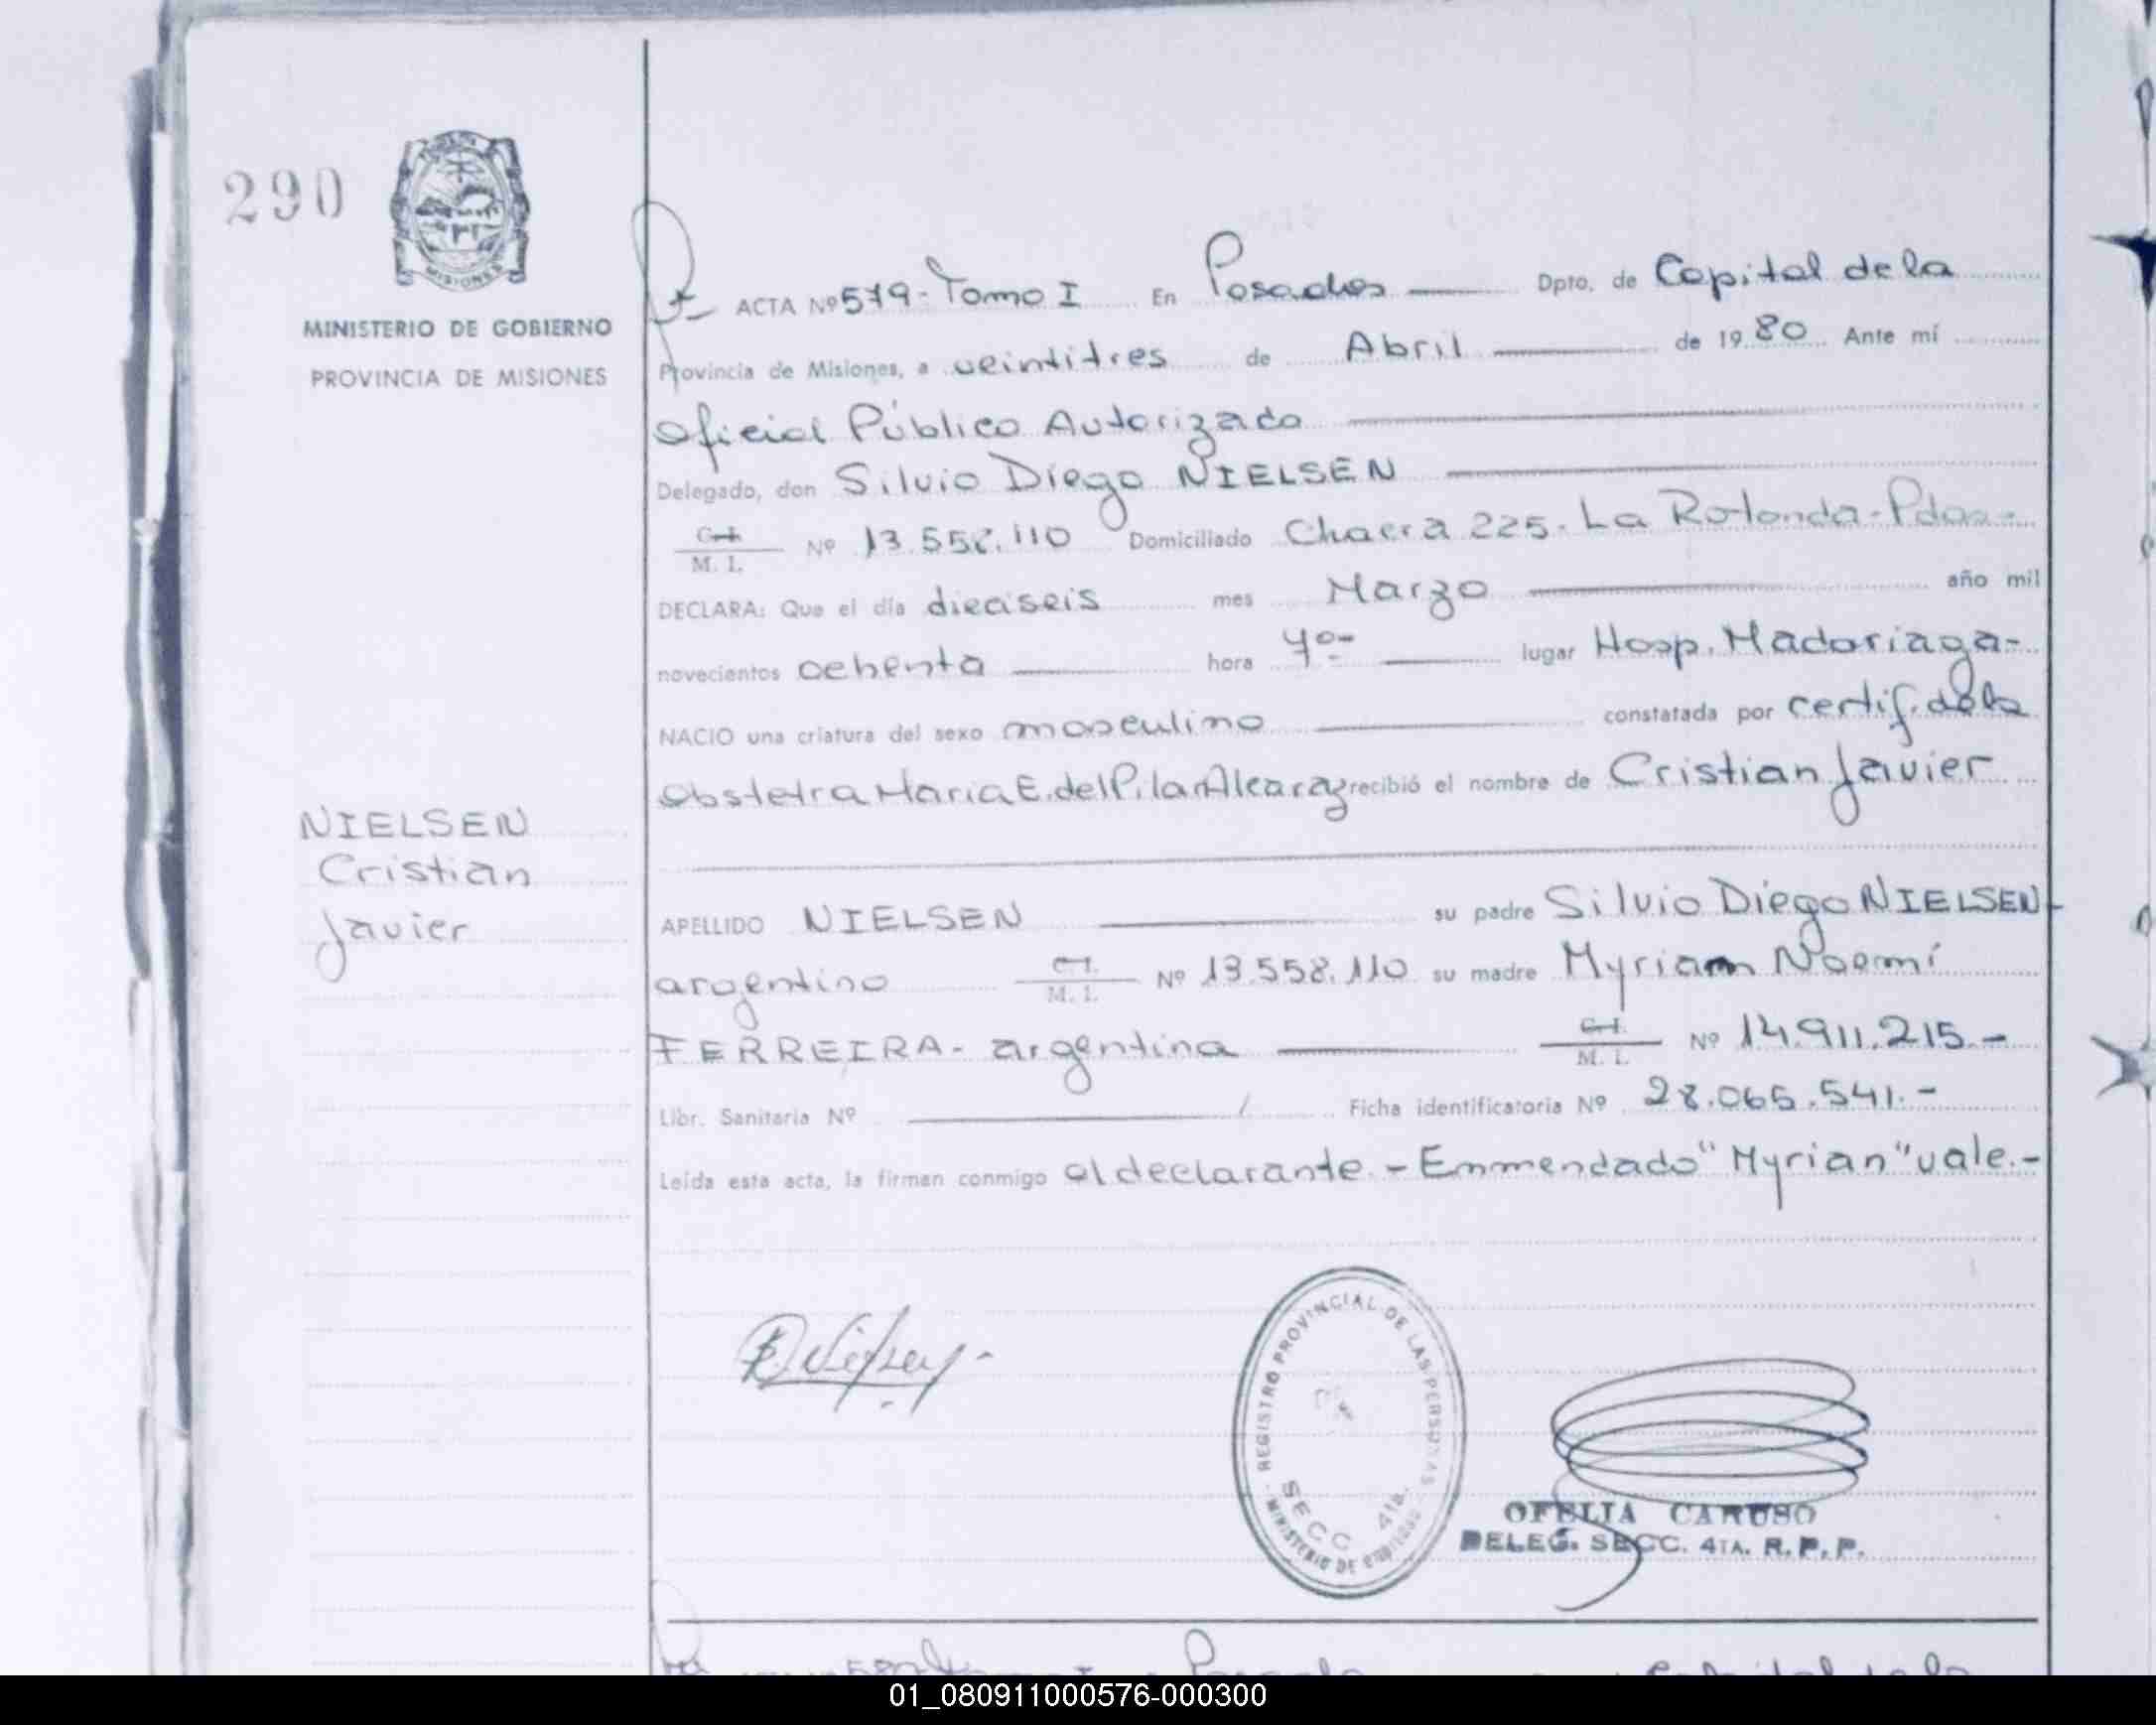 290
MISIONES
MINISTERIO DE GOBIERNO
PROVINCIA DE MISIONES
NIELSEN
Cristian
Javier
ACTA Nº 579 - Tomo I En Posadas Dpto. de Capital de la
Provincia de Misiones, a veintitres de Abril de 1980 Ante mí
Oficial Público Autorizado
Delegado, don Silvio Diego NIELSEN
C.I. M. I. Nº 13.558.110 Domiciliado Chacra 225. La Rotonda - Pdas -
DECLARA: Que el día dieciseis mes Marzo año mil
novecientos ochenta hora lugar Hosp. Madariaga -
NACIO una criatura del sexo masculino constatada por certif. de la
Obstetra Maria E. del Pilar Alcaraz recibió el nombre de Cristian Javier
APELLIDO NIELSEN su padre Silvio Diego NIELSEN -
argentino C.I. M. I. Nº 13.558.110 su madre Myriam Noemí
FERREIRA - argentina C.I. M. I. Nº 14.911.215.-
Libr. Sanitaria Nº / Ficha identificatoria Nº 28.065.541.-
Leída esta acta, la firman conmigo el declarante. - Enmendado "Myrian" vale.-
REGISTRO PROVINCIAL DE LAS PERSONAS
SECC 4ta.
MINISTERIO DE GOBIERNO
OFELIA CARUSO
DELEG. SECC. 4TA. R. P. P.
01_080911000576-000300